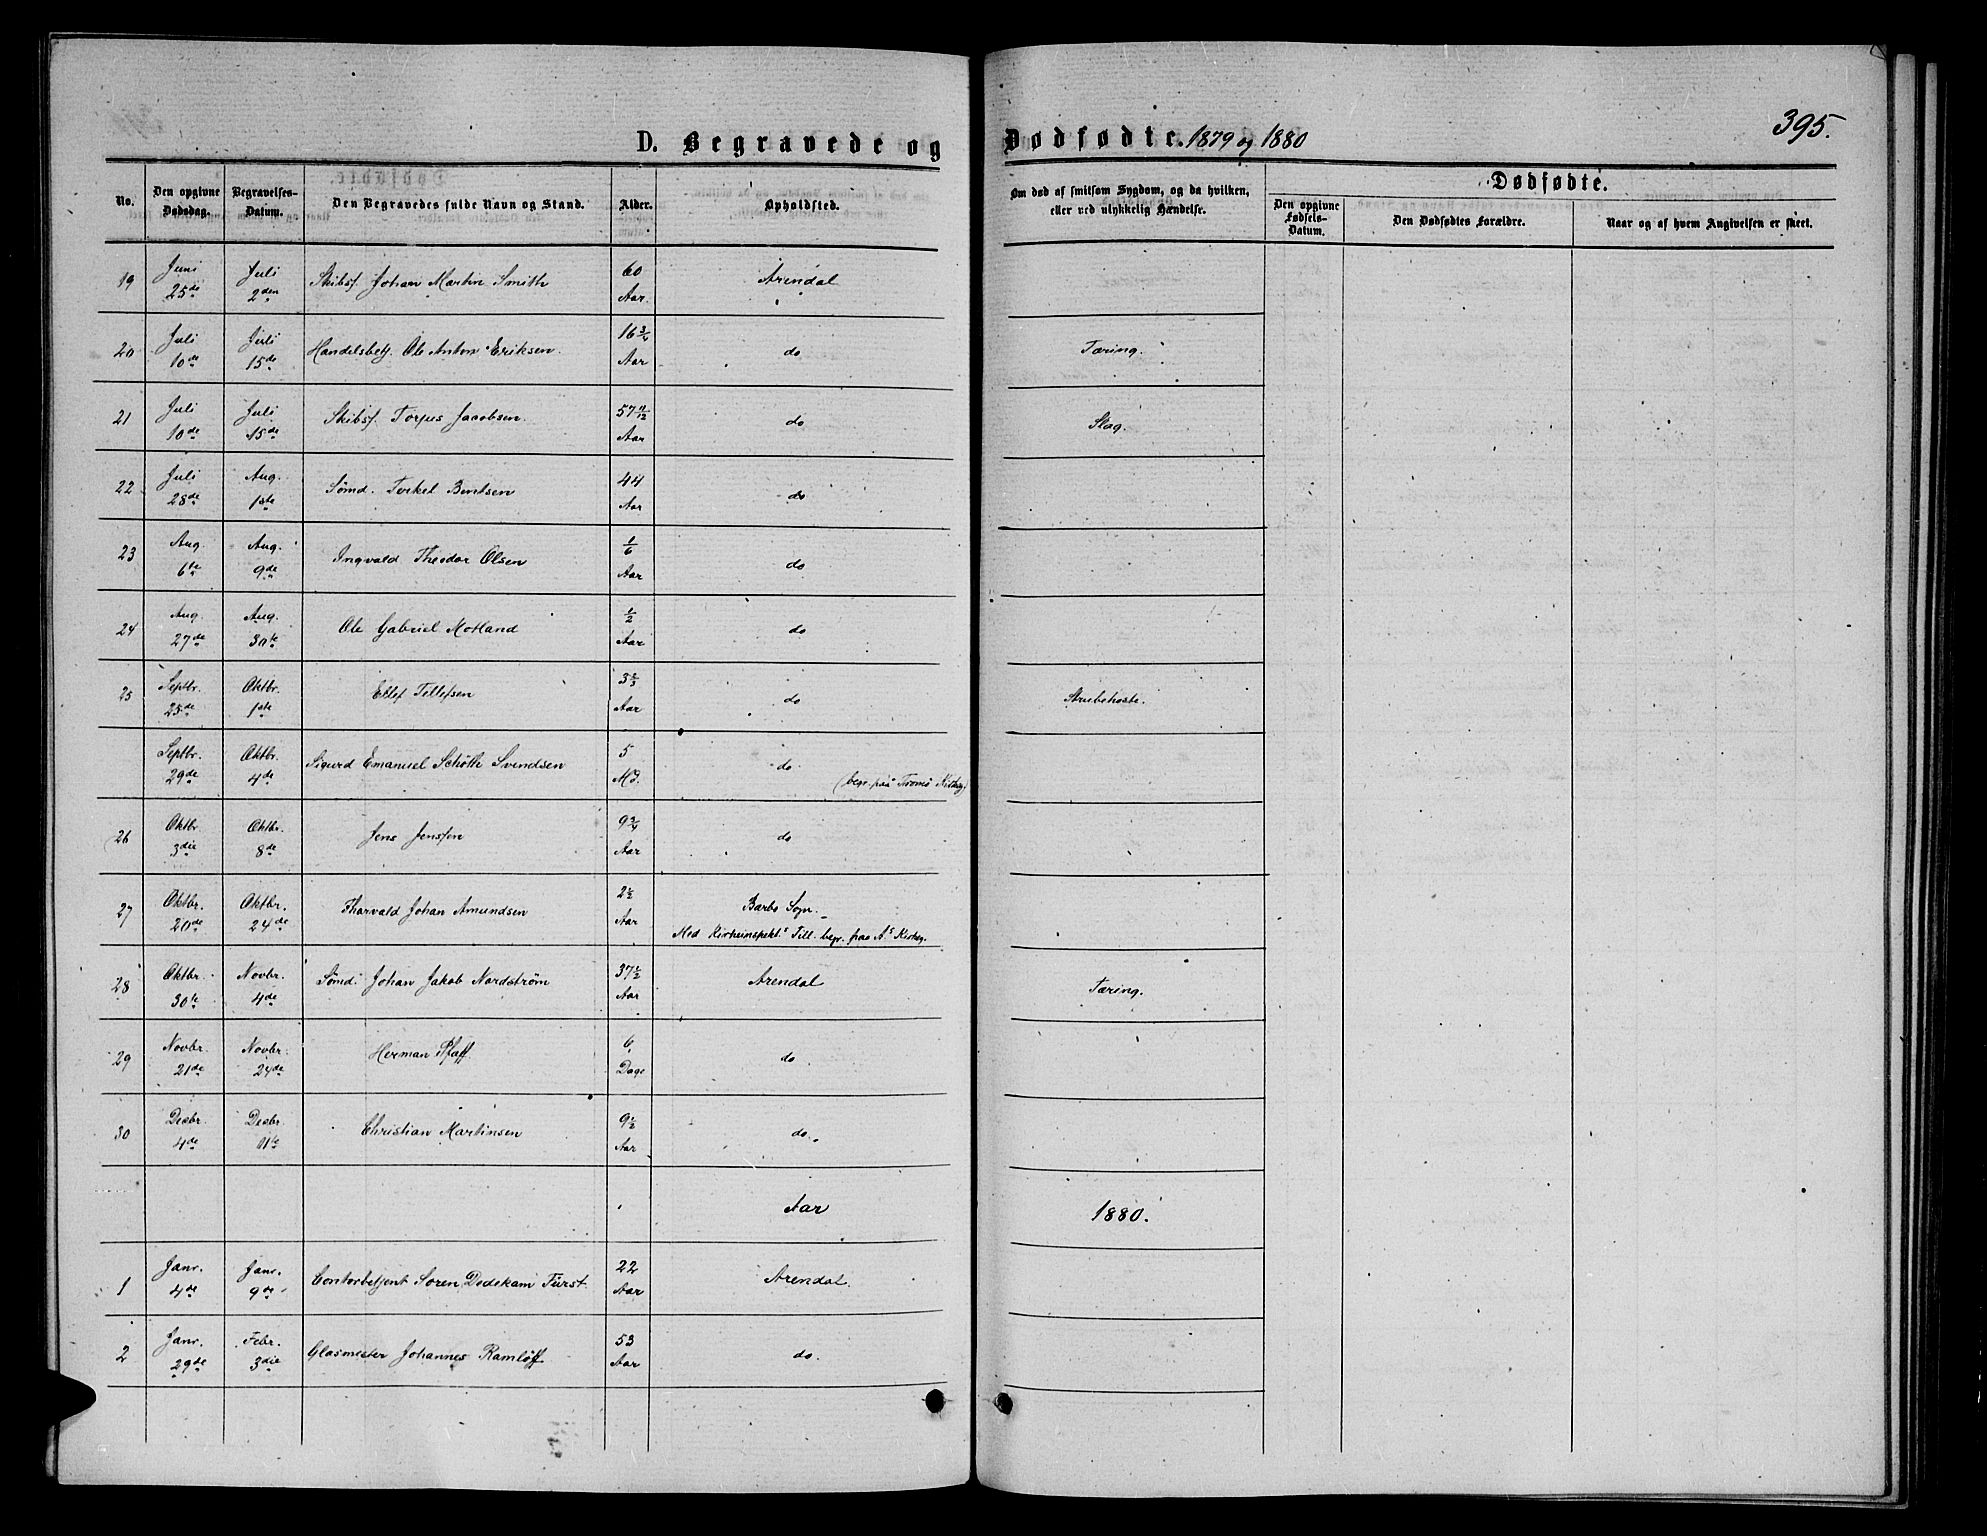 395.
D. Begravede og Dødfødte. 1879 og 1880
No. | Den opgivne Dødsdag. | Begravelses-Datum. | Den Begravedes fulde Navn og Stand. | Alder. | Opholdsted. | Om død af smitsom Sygdom, og da hvilken, eller ved ulykkelig Hændelse. | Dødfødte. | Den opgivne Fødsels-Datum. | Den Dødfødtes Forældre. | Naar og af hvem Angivelsen er skeet.
19 | Juni 25de | Juli 2den | Skibsf. Johan Martin Smith | 60 Aar. | Arendal
20 | Juli 10de | Juli 15de | Handelsbetj. Ole Anton Eriksen. | 16 3/4 Aar | do | Tæring.
21 | Juli 10de | Juli 15de | Skibsf. Torjus Jacobsen. | 57 11/12 Aar | do | Slag.
22 | Juli 28de | Aug. 1ste | Sømd. Terkel Bentsen | 44 Aar | do
23 | Aug. 6te | Aug. 9de | Ingvald Theodor Olsen | 1/6 Aar | do
24 | Aug. 27de | Aug. 30te | Ole Gabriel Motland | 1/2 Aar | do
25 | Septbr. 25de | Oktbr. 1ste | Ellef Tellefsen | 3 2/3 Aar | do | Strubehoste.
Septbr. 29de | Oktbr. 4de | Sigurd Emanuel Schøtte Svendsen | 5 Md. | do (begr. paa Tromø Kirkeg.)
26 | Oktbr. 3die | Oktbr. 8de | Jens Jensen | 9 3/4 Aar | do
27 | Oktbr. 20de | Oktbr. 24de | Tharvald Johan Amundsen | 2 1/2 Aar | Barbo Sogn. Med Kirkeinspekt.s Till. begr. paa A.s Kirkeg.
28 | Oktbr. 30te | Novbr. 4de | Sømd. Johan Jakob Nordstrøm | 37 1/2 Aar | Arendal | Tæring.
29 | Novbr. 21de | Novbr. 24de | Herman Pfaff | 6 Dage | do
30 | Decbr. 4de | Decbr. 11te | Christian Martinsen | 9 1/2 Aar | do.
Aar 1880.
1 | Janr. 4de | Janr. 9de | Contorbetjent Soren Dedekam Fürst | 22 Aar | Arendal.
2 | Janr. 29de | Febr. 3die | Glasmester Johannes Ramløff | 53 Aar | do.